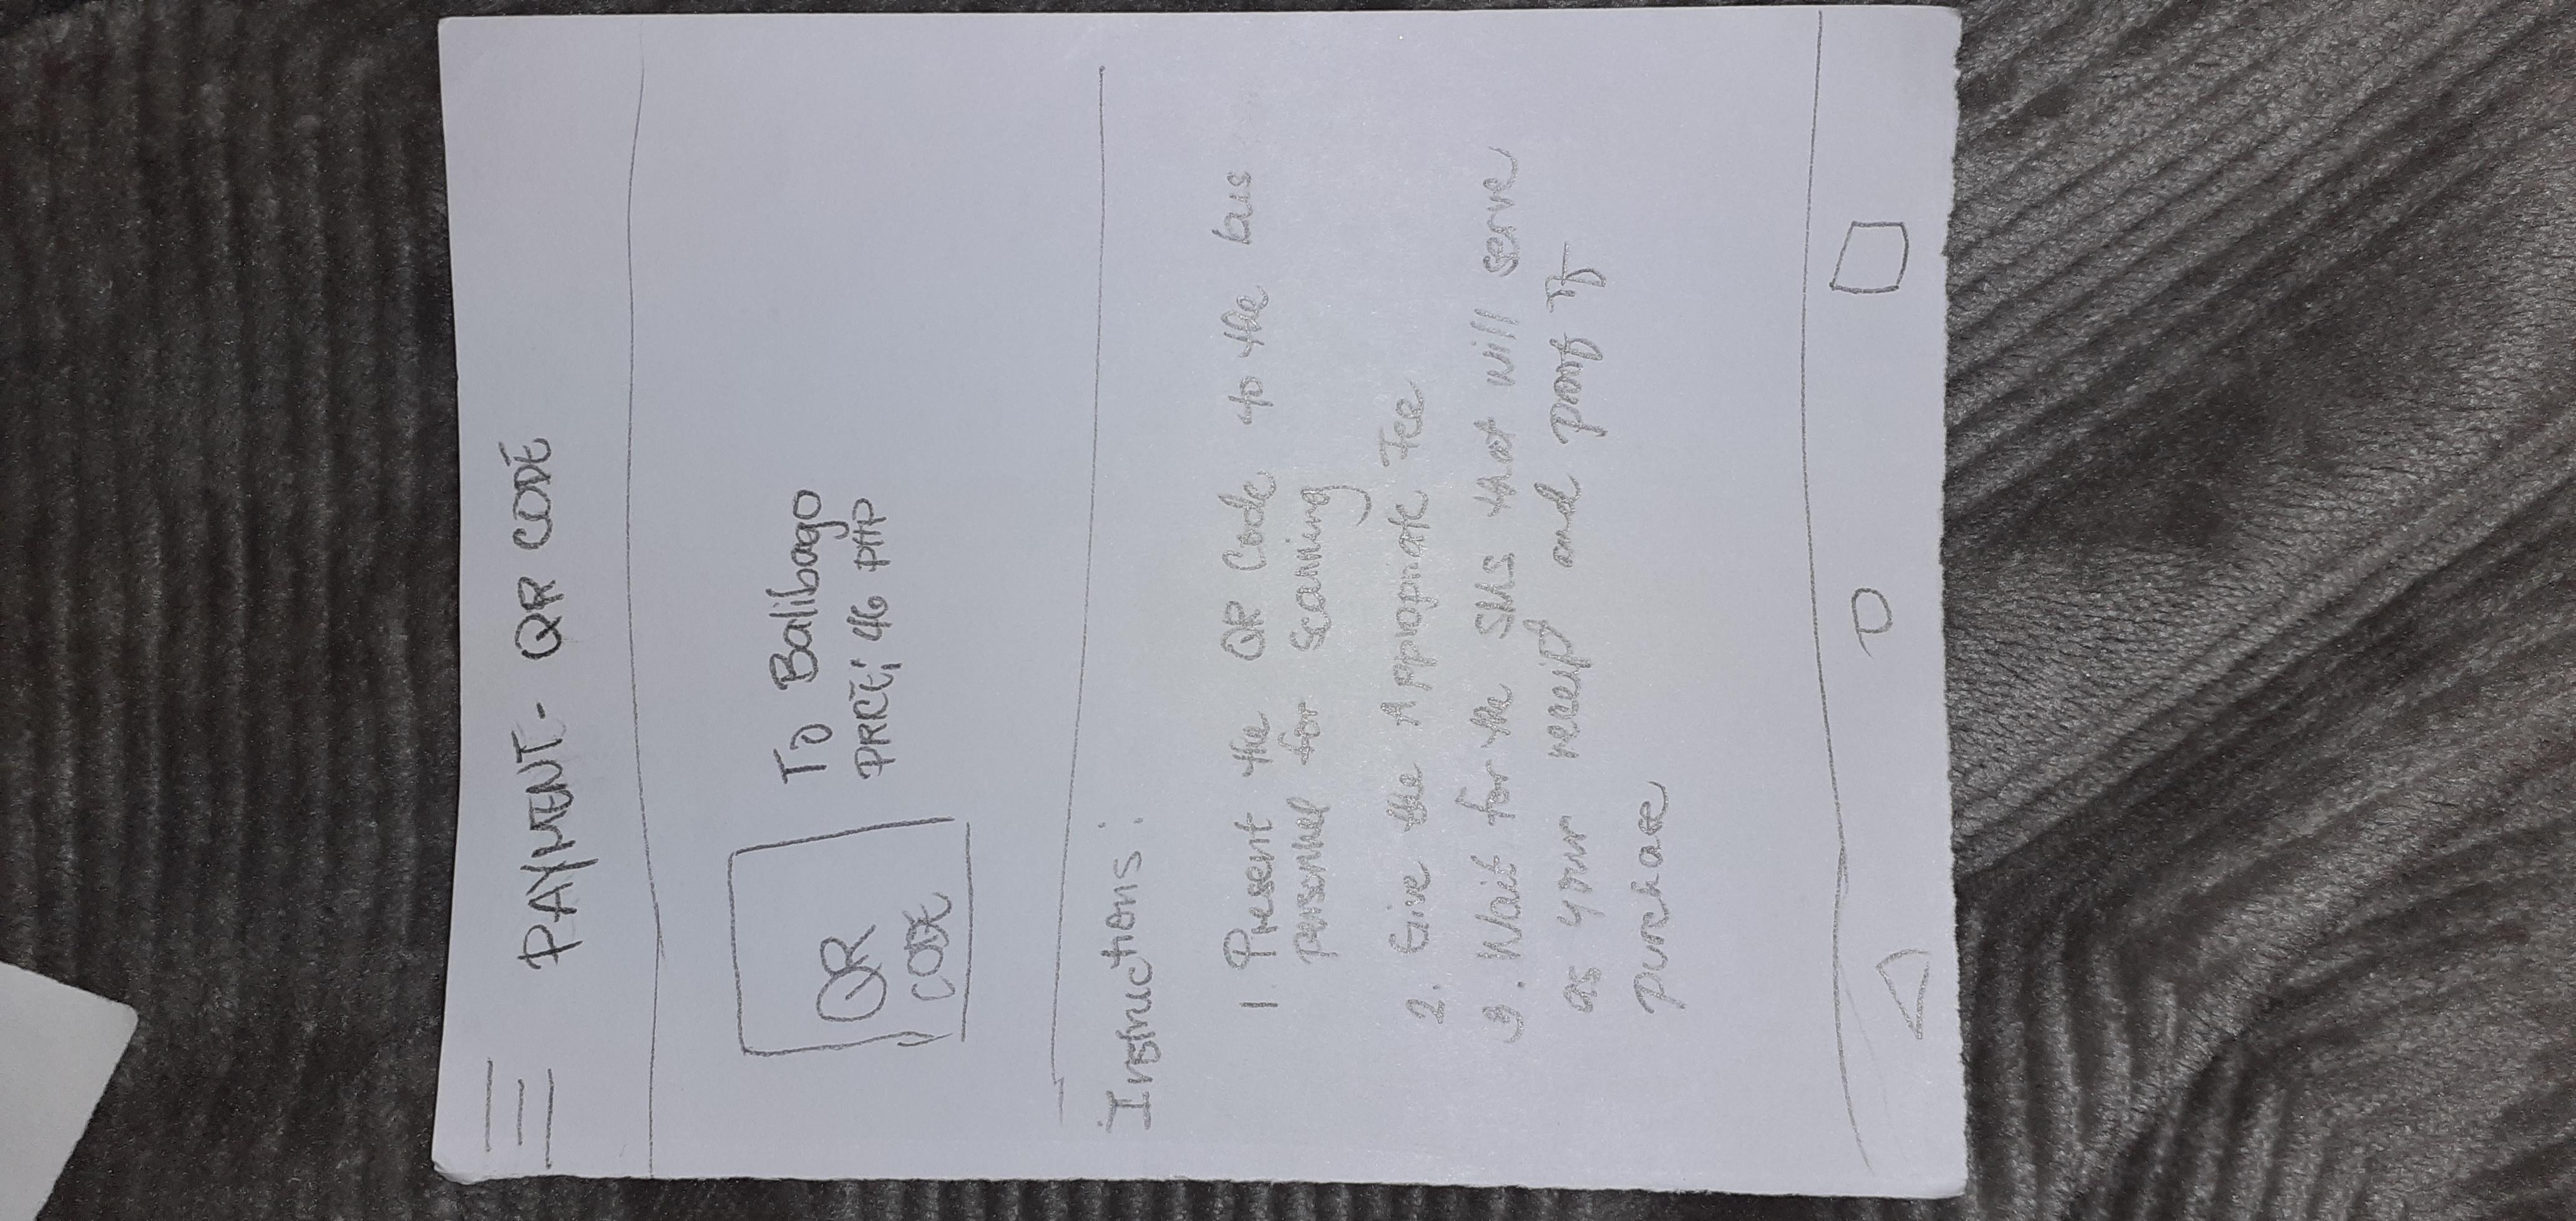 PAYMENT- QR CODE
QR
CODE
To Balibago
PRICE: 46 PHP
Instructions:
1 Present the QR Code to the bus
personnel for scanning
2. Give the Appropriate Fee
3. Wait for the SMS that will serve
as your receipt and proof of
purchase